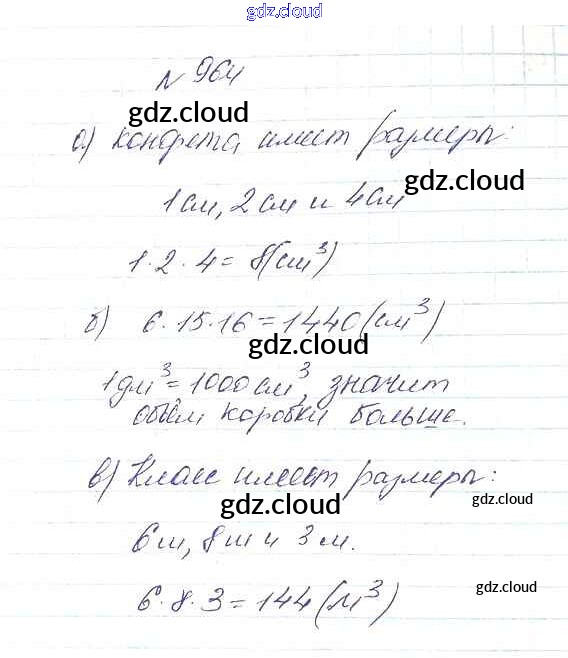 gdz.cloud
gdz.cloud
N 964
gdz.cloud
а) Конфета имеет размеры:
gdz.cloud
1 см, 2 см и 4 см
1·2·4=8(см³)
б) 6·15·16=1440(см³)
gdz.cloud
1дм³=1000см³, значит
объём коробки больше.
в) Класс имеет размеры:
gdz.cloud
gdz.cloud
6м, 8м и 3м.
6·8·3=144(м³)
gdz.cloud